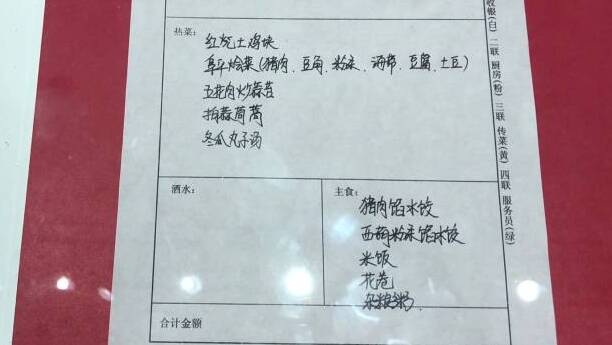 热菜:
红烧土鸡块
阜平烩菜(猪肉、豆角、粉条、海带、豆腐、土豆)
五花肉炒蒜苔
拍蒜茼蒿
冬瓜丸子汤
酒水:
主食:
猪肉馅水饺
西葫粉条馅水饺
米饭
花卷
杂粮粥
合计金额
收银(白) 二联 厨房(粉) 三联 传菜(黄) 四联 服务员(绿)